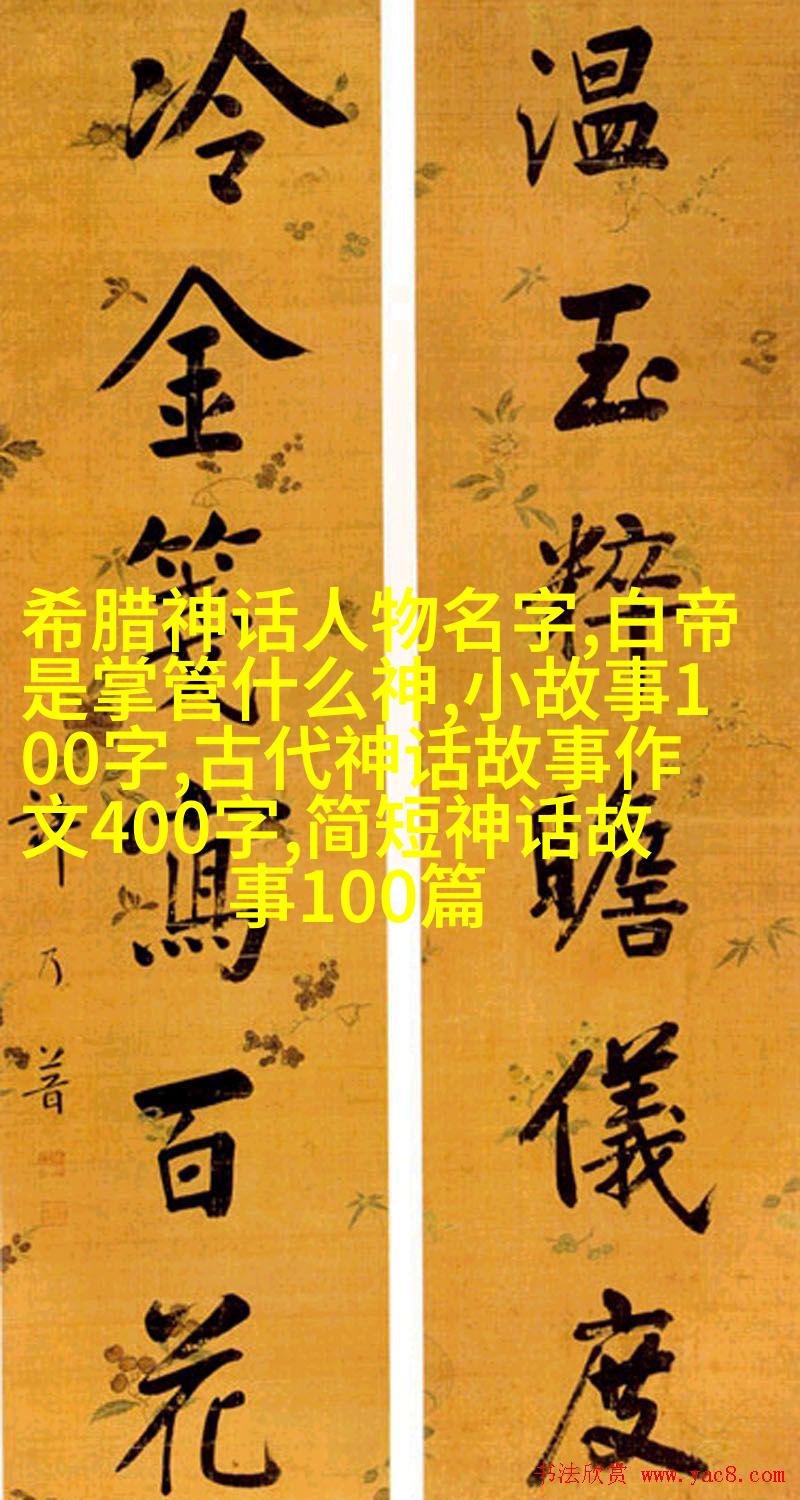 温玉粹瞻儀度
冷金箋寫百花
許乃普
希腊神话人物名字,白帝
是掌管什么神,小故事1
00字,古代神话故事作
文400字,简短神话故
事100篇
书法欣赏 www.yac8.com